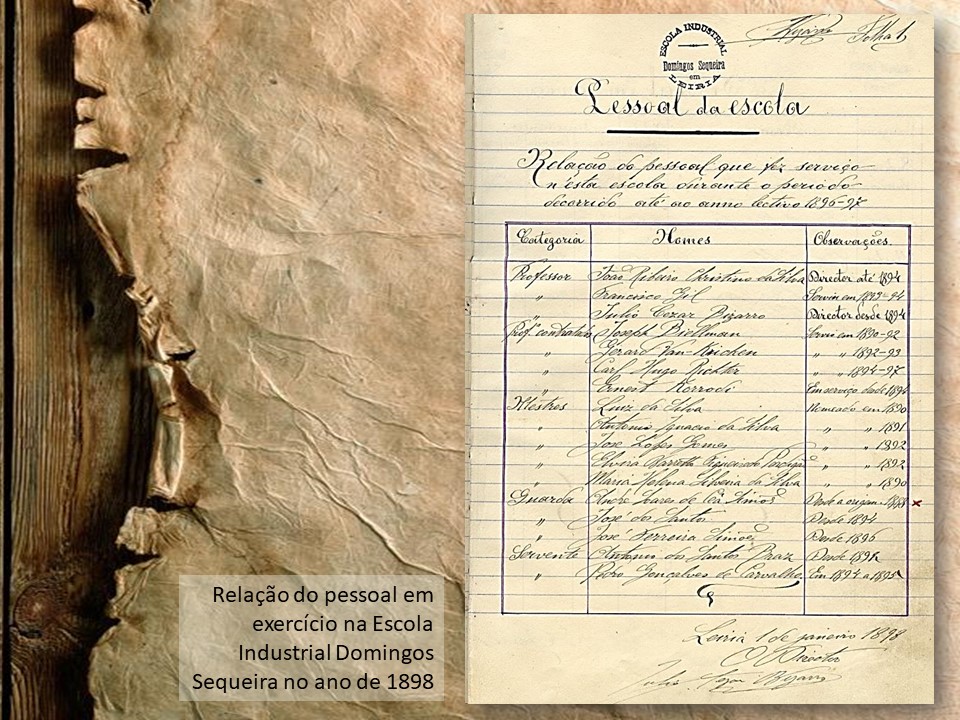 Folha 1
ESCOLA INDUSTRIAL
Domingos Sequeira
em
LEIRIA
Pessoal da escola
Relação do pessoal que fez serviço
n'esta escola durante o periodo
decorrido até ao anno lectivo 1896-97
Categoria Nomes Observações.
Professor João Ribeiro Christino da Silva Director até 1894
" Francisco Gil Serviu em 1893-94
" Julio Cezar Bizarro Director desde 1894
Prof. contratado Joseph Biellman Serviu em 1890-92
" Gerard Van-Krichen " " 1892-93
" Carl Hugo Richter " " 1894-97
" Ernest Korrodi Em serviço desde 1894
Mestres Luiz da Silva Nomeado em 1890
" Antonio Ignacio da Silva " " 1891
" José Lopes Gomes " " 1892
" Elvira Figueiredo " " 1892
" Maria Helena Silveira da Silva " " 1890
Guarda André Soares de Simões Desde a origem
" José dos Santos Desde 1894
" José Ferreira Simões Desde 1896
Servente Antonio dos Santos Braz Desde
" Pedro Gonçalves de Carvalho Em 1894 a 1895
Leiria 1 de janeiro 1898
O Director
Julio Cezar Bizarro
Relação do pessoal em
exercício na Escola
Industrial Domingos
Sequeira no ano de 1898